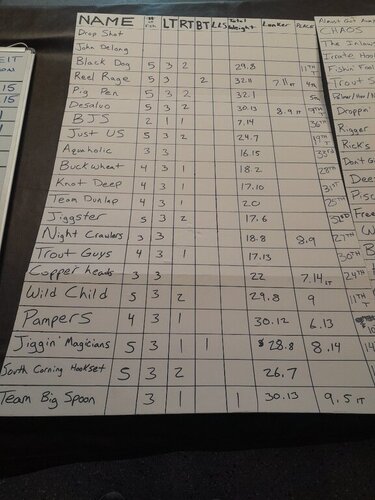 NAME # Fish LT RT BT LLS Total Weight Lunker PLACE
Drop Shot
John Delong
Black Dog 5 3 2 29.8 11TH
Reel Rage 5 3 2 32.8 7.11
Pig Pen 5 3 2 32.1
Desalvo 5 3 2 30.13 8.9
BJS 2 1 1 7.14 36TH
Just US 5 3 2 24.7 19TH
Aquaholic 3 3 16.15 33RD
Buckwheat 4 3 1 18.2 28TH
Knot Deep 4 3 1 17.10 31ST
Team Dunlap 4 3 1 20 25TH
Jiggster 5 3 2 17.6 32ND
Night Crawlers 3 3 18.8 8.9 27TH
Trout Guys 4 3 1 17.13 30TH
Copper heads 3 3 22 7.14 24TH
Wild Child 5 3 2 29.8 9 11TH
Pampers 4 3 1 30.12 6.13
Jiggin' Magicians 5 3 1 1 28.8 8.14
South Corning Hookset 5 3 2 26.7
Team Big Spoon 3 1 1 30.13 9.5
CHAOS
The Inlaws
Irrate
Fishin'
Trout
Droppin'
Rigger
Rick's